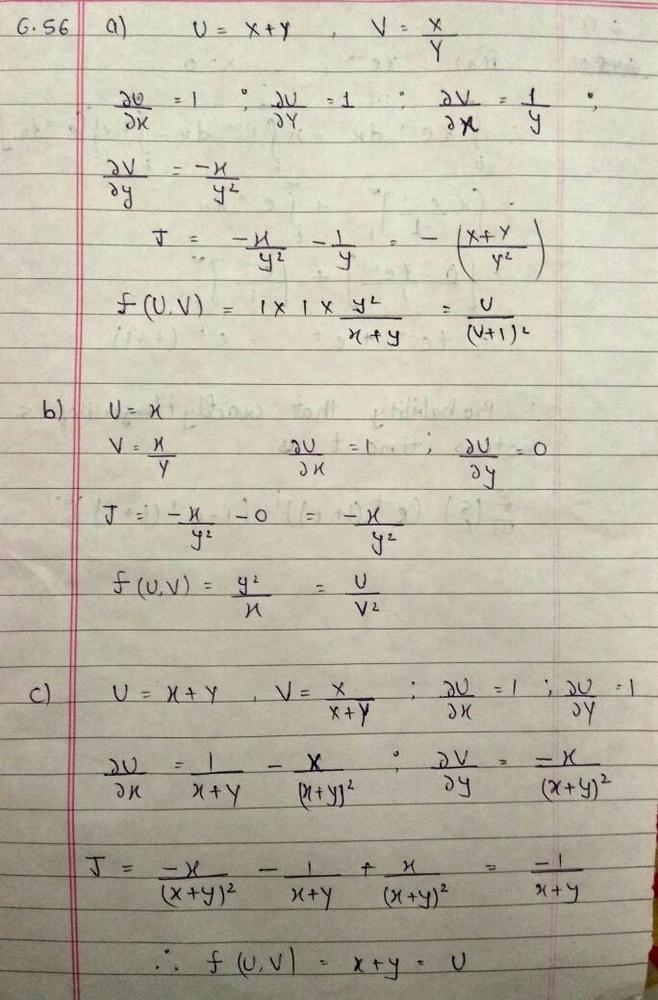 6.56 a) U = X+Y , V = X/Y
∂U/∂x = 1 ; ∂U/∂Y = 1 ; ∂V/∂x = 1/y ;
∂V/∂y = -x/y²
J = -x/y² - 1/y = - (X+Y/Y²)
f(U,V) = 1 x 1 x y²/x+y = U/(V+1)²
b) U = x
V = x/Y ∂U/∂x = 1 ; ∂U/∂y = 0
J = -x/y² - 0 = -x/y²
f(U,V) = y²/x = U/V²
c) U = x+Y , V = X/X+Y ; ∂U/∂x = 1 ; ∂U/∂Y = 1
∂U/∂x = 1/x+y - x/(x+y)² ; ∂V/∂y = -x/(x+y)²
J = -x/(x+y)² - 1/x+y + x/(x+y)² = -1/x+y
∴ f(U,V) = x+y = U